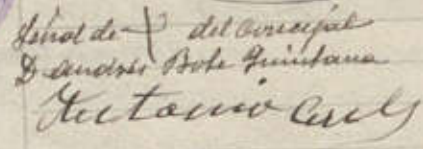 Señal de + del concejal
D Andrés Bote Quintana
Antonio